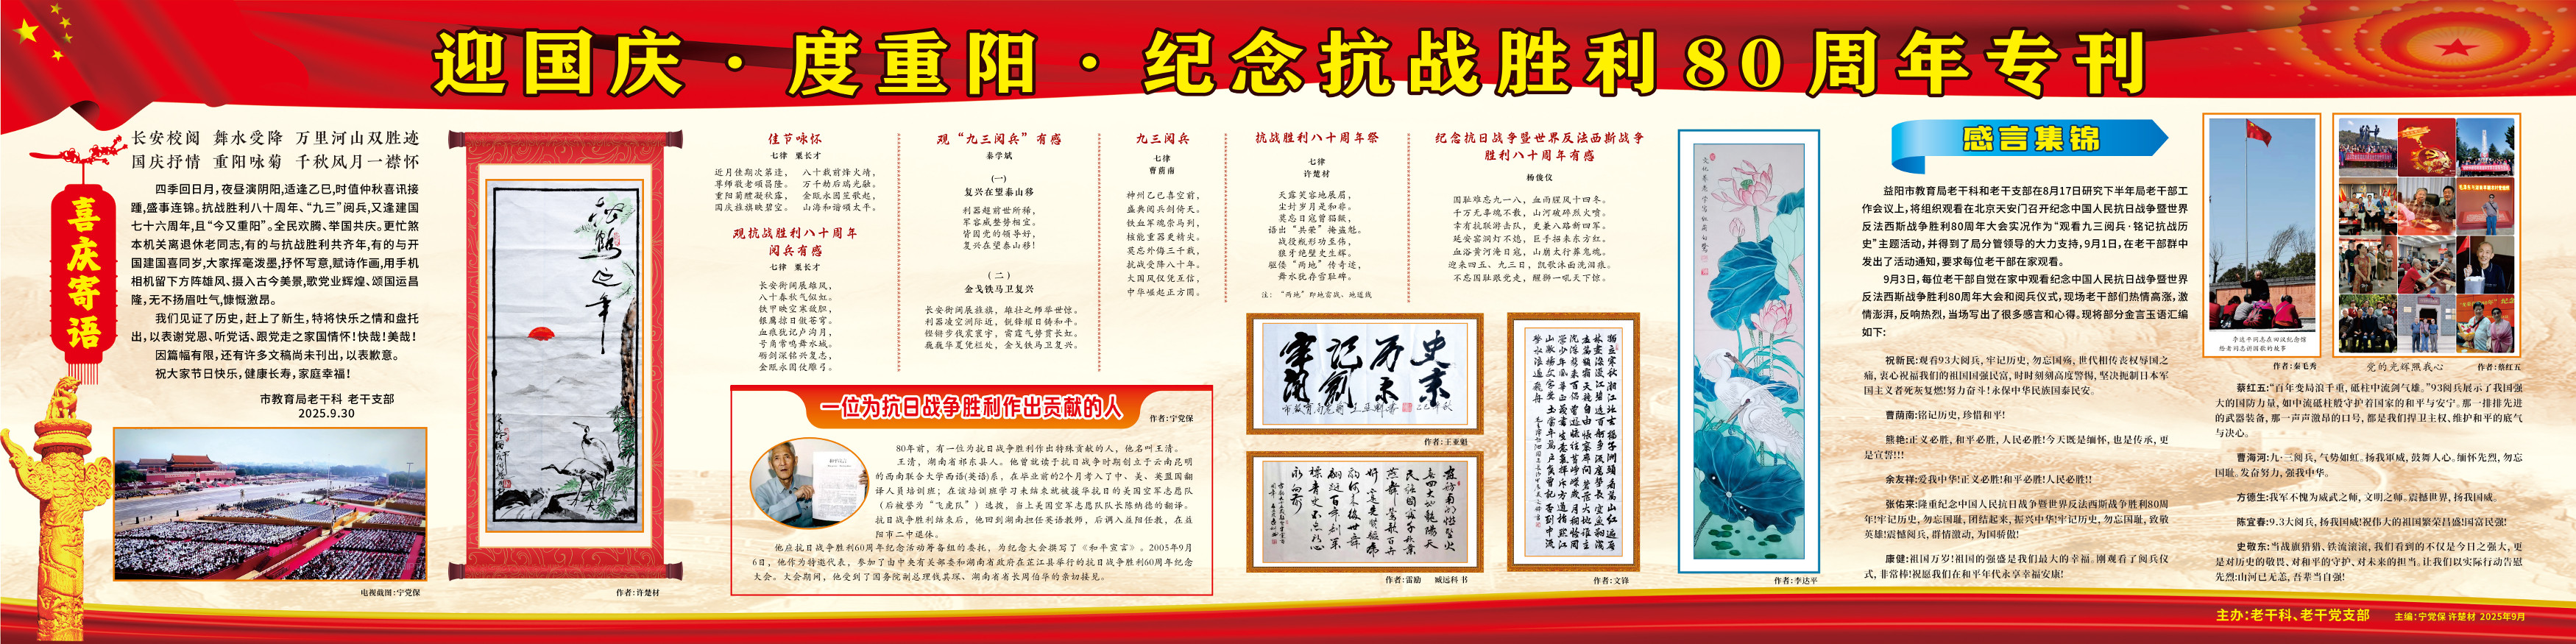 迎国庆·度重阳·纪念抗战胜利80周年专刊
喜庆寄语
长安校阅 舞水受降 万里河山双胜迹
国庆抒情 重阳咏菊 千秋风月一襟怀
四季回日月,夜昼演阴阳,适逢乙巳,时值仲秋喜讯接
踵,盛事连锦。抗战胜利八十周年、“九三”阅兵,又逢建国
七十六周年,且“今又重阳”。全民欢腾、举国共庆。更忙煞
本机关离退休老同志,有的与抗战胜利共齐年,有的与开
国建国喜同岁,大家挥毫泼墨,抒怀写意,赋诗作画,用手机
相机留下方阵雄风、摄入古今美景,歌党业辉煌、颂国运昌
隆,无不扬眉吐气,慷慨激昂。
我们见证了历史,赶上了新生,特将快乐之情和盘托
出,以表谢党恩、听党话、跟党走之家国情怀!快哉!美哉!
因篇幅有限,还有许多文稿尚未刊出,以表歉意。
祝大家节日快乐,健康长寿,家庭幸福!
市教育局老干科 老干支部
2025.9.30
电视截图:宁党保
松鹤延年
作者:许楚材
佳节咏怀
七律 栗长才
近月佳期次第逢, 八十载前烽火靖,
尊师敬老颂昌隆。 万千劫后瑞光融。
重阳菊醴凝秋露, 金瓯永固笙歌起,
国庆旌旗映碧空。 山海和谐颂太平。
观抗战胜利八十周年
阅兵有感
七律 栗长才
长安街阔展雄风,
八十春秋气似虹。
铁甲映空寒敌胆,
银鹰掠日傲苍穹。
血痕犹记卢沟月,
号角常鸣舞水城。
砺剑深铭兴复志,
金瓯永固仗雕弓。
观“九三阅兵”有感
秦学斌
(一)
复兴在望泰山移
利器超前世所稀,
军容威整势相宜。
皆因党的领导好,
复兴在望泰山移!
(二)
金戈铁马卫复兴
长安街阔展旌旗,雄壮之师举世惊。
利器凌空洲际近,锐锋耀日铸和平。
铿锵步伐震寰宇,雷霆气势贯长虹。
巍巍华夏凭栏处,金戈铁马卫复兴。
九三阅兵
七律
曹荫南
神州乙巳喜空前,
盛典阅兵剑倚天。
铁血军魂崇马列,
核能重器更精尖。
莫忘外侮三千载,
抗战受降八十年。
大国风仪凭互信,
中华崛起正方圆。
抗战胜利八十周年祭
七律
许楚材
天露笑容地展眉,
尘封岁月是和非。
莫忘日寇曾猖獗,
语出“共荣”掩盗魁。
战役瓶形功至伟,
狼牙绝壁史生辉。
驱倭“两地”传奇迹,
舞水犹存雪耻碑。
注:“两地”即地雷战、地道战
纪念抗日战争暨世界反法西斯战争
胜利八十周年有感
杨俊仪
国耻难忘九一八,血雨腥风十四冬。
千万无辜魂不散,山河破碎烈火喷。
幸有抗联游击队,更兼八路新四军。
延安窑洞灯不熄,巨手招来东方红。
血浴黄河淹日寇,山崩太行葬鬼魂。
迎来四五、九三日,凯歌沐面洗泪痕。
不忘国耻跟党走,醒狮一吼天下惊。
一位为抗日战争胜利作出贡献的人
作者:宁党保
80年前,有一位为抗日战争胜利作出特殊贡献的人,他名叫王清。
王清,湖南省祁东县人。他曾就读于抗日战争时期创立于云南昆明
的西南联合大学西语(英语)系,在毕业前的2个月考入了中、美、英盟国翻
译人员培训班;在该培训班学习未结束就被援华抗日的美国空军志愿队
(后被誉为“飞虎队”)选拨,当上美国空军志愿队队长陈纳德的翻译。
抗日战争胜利结束后,他回到湖南担任英语教师,后调入益阳任教,在益
阳市二中退休。
他应抗日战争胜利60周年纪念活动筹备组的委托,为纪念大会撰写了《和平宣言》。2005年9月
6日,他作为特邀代表,参加了由中央有关部委和湖南省政府在芷江县举行的抗日战争胜利60周年纪念
大会。大会期间,他受到了国务院副总理钱其琛、湖南省省长周伯华的亲切接见。
作者:王亚魁
作者:雷励 臧远科 书
作者:文锋
作者:李达平
感言集锦
益阳市教育局老干科和老干支部在8月17日研究下半年局老干部工
作会议上,将组织观看在北京天安门召开纪念中国人民抗日战争暨世界
反法西斯战争胜利80周年大会实况作为“观看九三阅兵·铭记抗战历
史”主题活动,并得到了局分管领导的大力支持,9月1日,在老干部群中
发出了活动通知,要求每位老干部在家观看。
9月3日,每位老干部自觉在家中观看纪念中国人民抗日战争暨世界
反法西斯战争胜利80周年大会和阅兵仪式,现场老干部们热情高涨,激
情澎湃,反响热烈,当场写出了很多感言和心得。现将部分金言玉语汇编
如下:
祝新民:观看93大阅兵,牢记历史,勿忘国殇,世代相传丧权辱国之
痛,衷心祝福我们的祖国国强民富,时时刻刻高度警惕,坚决扼制日本军
国主义者死灰复燃!努力奋斗!永保中华民族国泰民安。
曹荫南:铭记历史,珍惜和平!
熊艳:正义必胜,和平必胜,人民必胜!今天既是缅怀,也是传承,更
是宣誓!!!
余友祥:爱我中华!正义必胜!和平必胜!人民必胜!!
张佑来:隆重纪念中国人民抗日战争暨世界反法西斯战争胜利80周
年!牢记历史,勿忘国耻,团结起来,振兴中华!牢记历史,勿忘国耻,致敬
英雄!震撼阅兵,群情激动,为国骄傲!
康健:祖国万岁!祖国的强盛是我们最大的幸福。刚观看了阅兵仪
式,非常棒!祝愿我们在和平年代永享幸福安康!
李送平同志在田汉纪念馆
给老同志讲国歌的故事
作者:秦毛秀
党的光辉照我心
作者:蔡红五
蔡红五:“百年变局浪千重,砥柱中流剑气雄。”93阅兵展示了我国强
大的国防力量,如中流砥柱般守护着国家的和平与安宁。那一排排先进
的武器装备,那一声声激昂的口号,都是我们捍卫主权、维护和平的底气
与决心。
曹海河:九·三阅兵,气势如虹。扬我军威,鼓舞人心。缅怀先烈,勿忘
国耻。发奋努力,强我中华。
方德生:我军不愧为威武之师,文明之师。震撼世界,扬我国威。
陈宜春:9.3大阅兵,扬我国威!祝伟大的祖国繁荣昌盛!国富民强!
史敬东:当战旗猎猎、铁流滚滚,我们看到的不仅是今日之强大,更
是对历史的敬畏、对和平的守护、对未来的担当。让我们以实际行动告慰
先烈:山河已无恙,吾辈当自强!
主办:老干科、老干党支部
主编:宁党保 许楚材 2025年9月